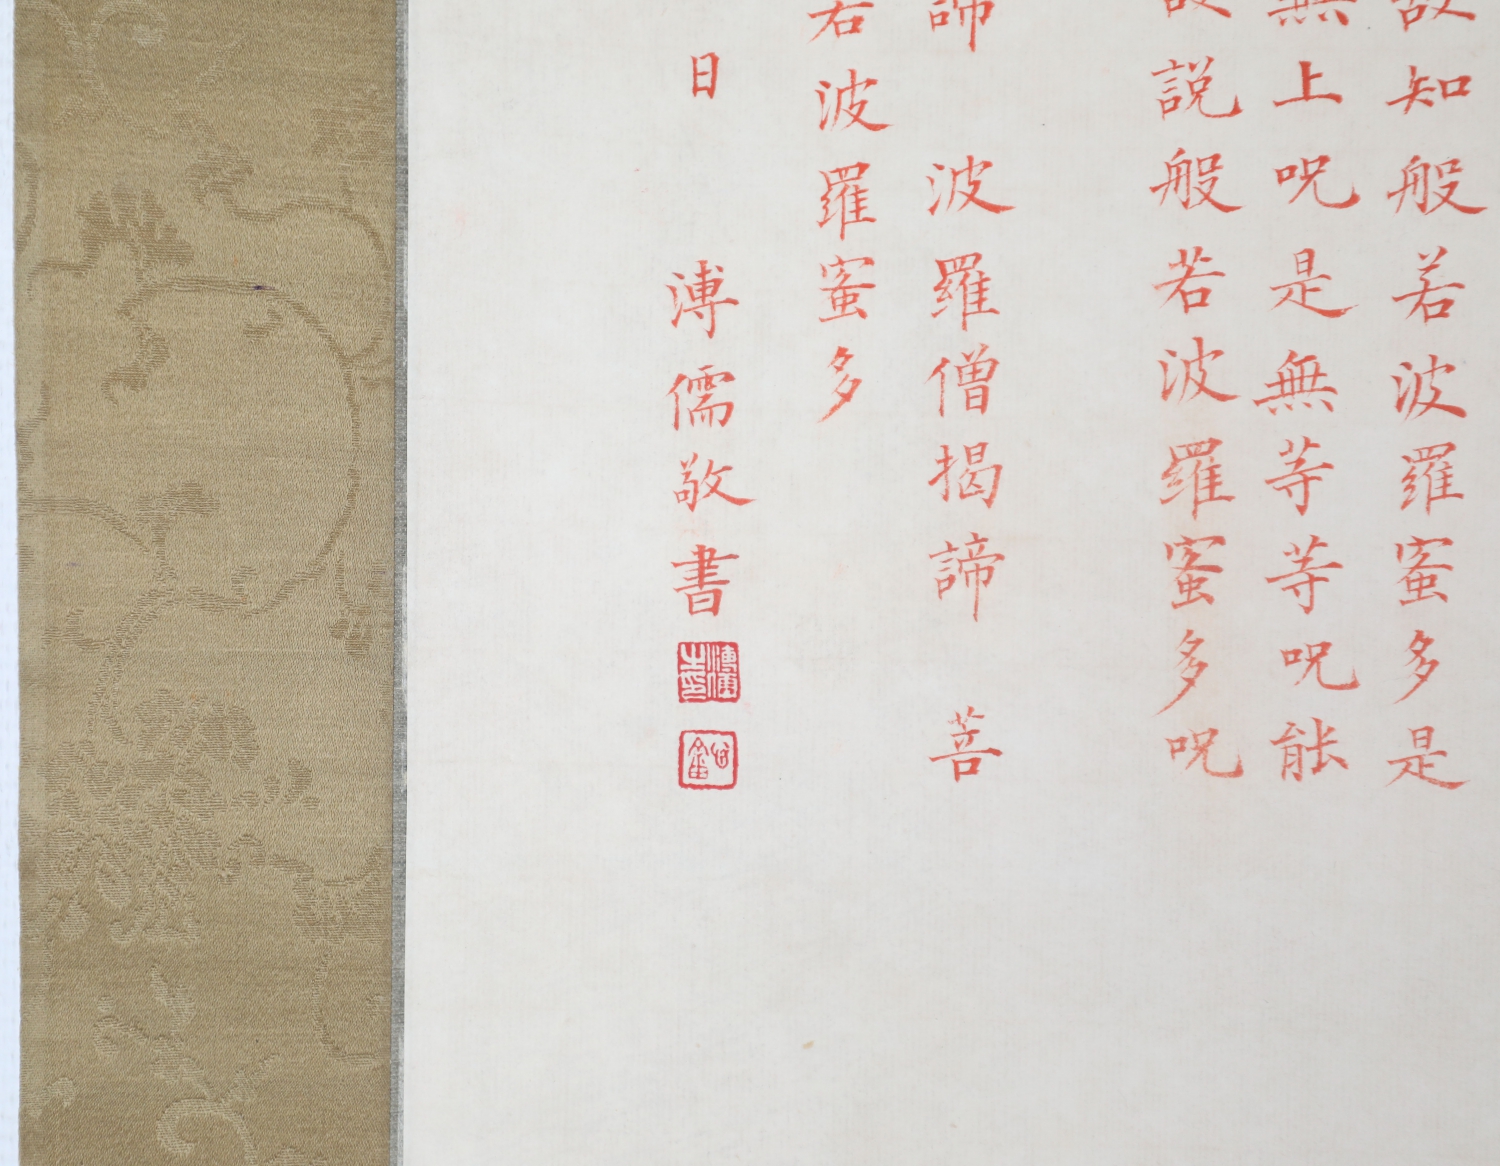 故知般若波羅蜜多是
無上呪是無等等呪能
說般若波羅蜜多呪
諦 波羅僧揭諦 菩
若波羅蜜多
日 溥儒敬書